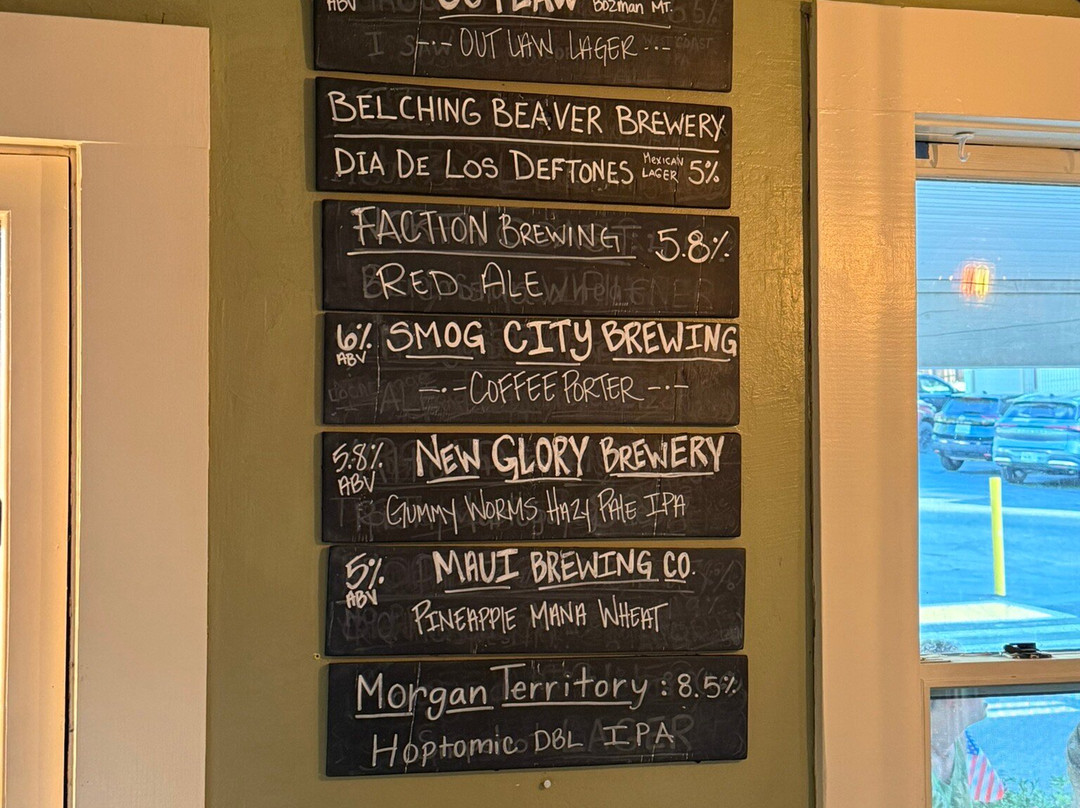 ABV OUTLAW Bozman MT.
-·- OUTLAW LAGER -·-
BELCHING BEAVER BREWERY
DIA DE LOS DEFTONES MEXICAN LAGER 5%
FACTION BREWING 5.8%
RED ALE
6% ABV SMOG CITY BREWING
-·- COFFEE PORTER -·-
5.8% ABV NEW GLORY BREWERY
GUMMY WORMS HAZY PALE IPA
5% ABV MAUI BREWING CO.
PINEAPPLE MANA WHEAT
Morgan Territory : 8.5%
Hoptomic DBL IPA